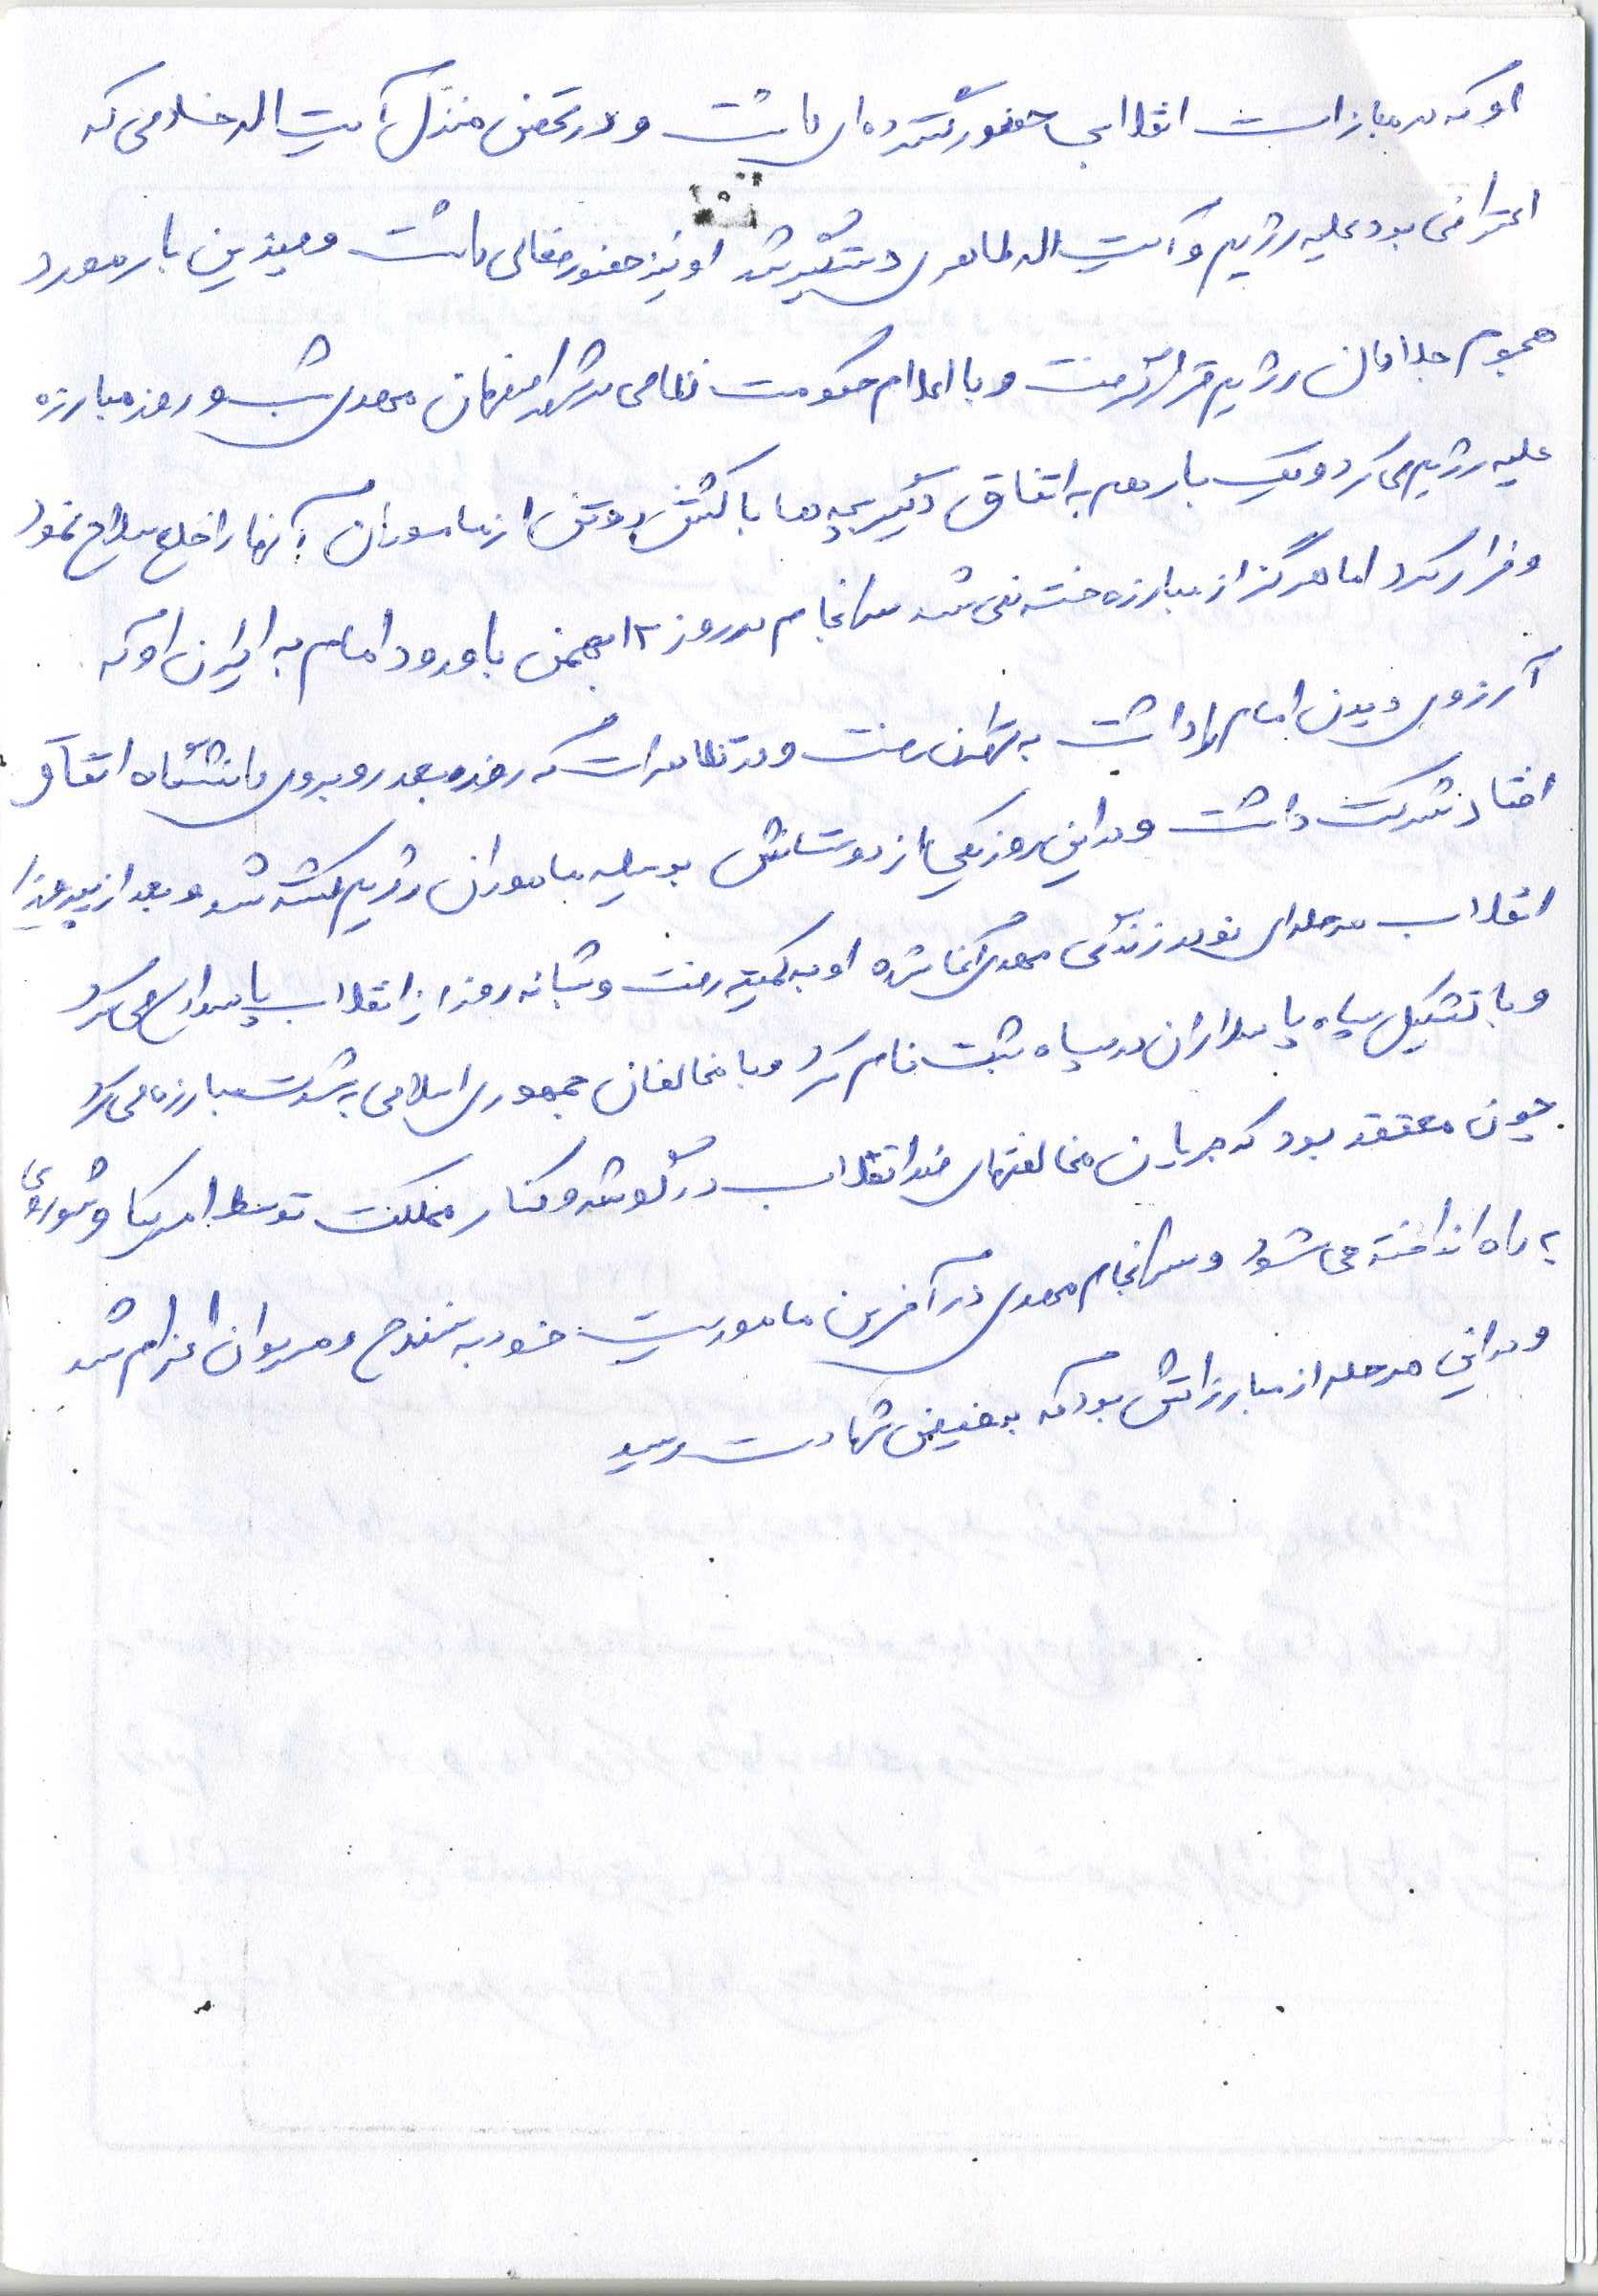 او که در مبارزات انقلابی حضور گسترده ای داشت و در تحصن منزل آیت اله خادمی که
اعتراضی بود علیه رژیم و آیت اله طاهری دستگیر شد او نیز حضور فعالی داشت و چندین بار مورد
هجوم جلادان رژیم قرار گرفت و با اعلام حکومت نظامی در شهر اصفهان مهدی شب و روز مبارزه
علیه رژیم می کرد و یک بار هم به اتفاق دیگر بچه ها با کشتن دو تن از ماموران آنها را خلع سلاح نمود
و فرار کرد اما هرگز از مبارزه خسته نمی شد سرانجام در روز ۱۲ بهمن با ورود امام به ایران او که
آرزوی دیدن امام را داشت به تهران رفت و در تظاهرات که روز بعد روبروی دانشگاه اتفاق
افتاد شرکت داشت و در این روز یکی از دوستانش بوسیله ماموران رژیم کشته شد و بعد از پیروزی
انقلاب مرحله ای نو در زندگی مهدی آغاز شده او به کمیته رفت و شبانه روز از انقلاب پاسداری می کرد
و با تشکیل سپاه پاسداران در سپاه ثبت نام کرد و با مخالفان جمهوری اسلامی به شدت مبارزه می کرد
چون معتقد بود که جریان مخالفتهای ضد انقلاب در گوشه و کنار مملکت توسط امریکا و شوروی
به راه انداخته می شود و سرانجام مهدی در آخرین ماموریت خود به سنندج و مریوان اعزام شد
و در این مرحله از مبارزاتش بود که به فیض شهادت رسید